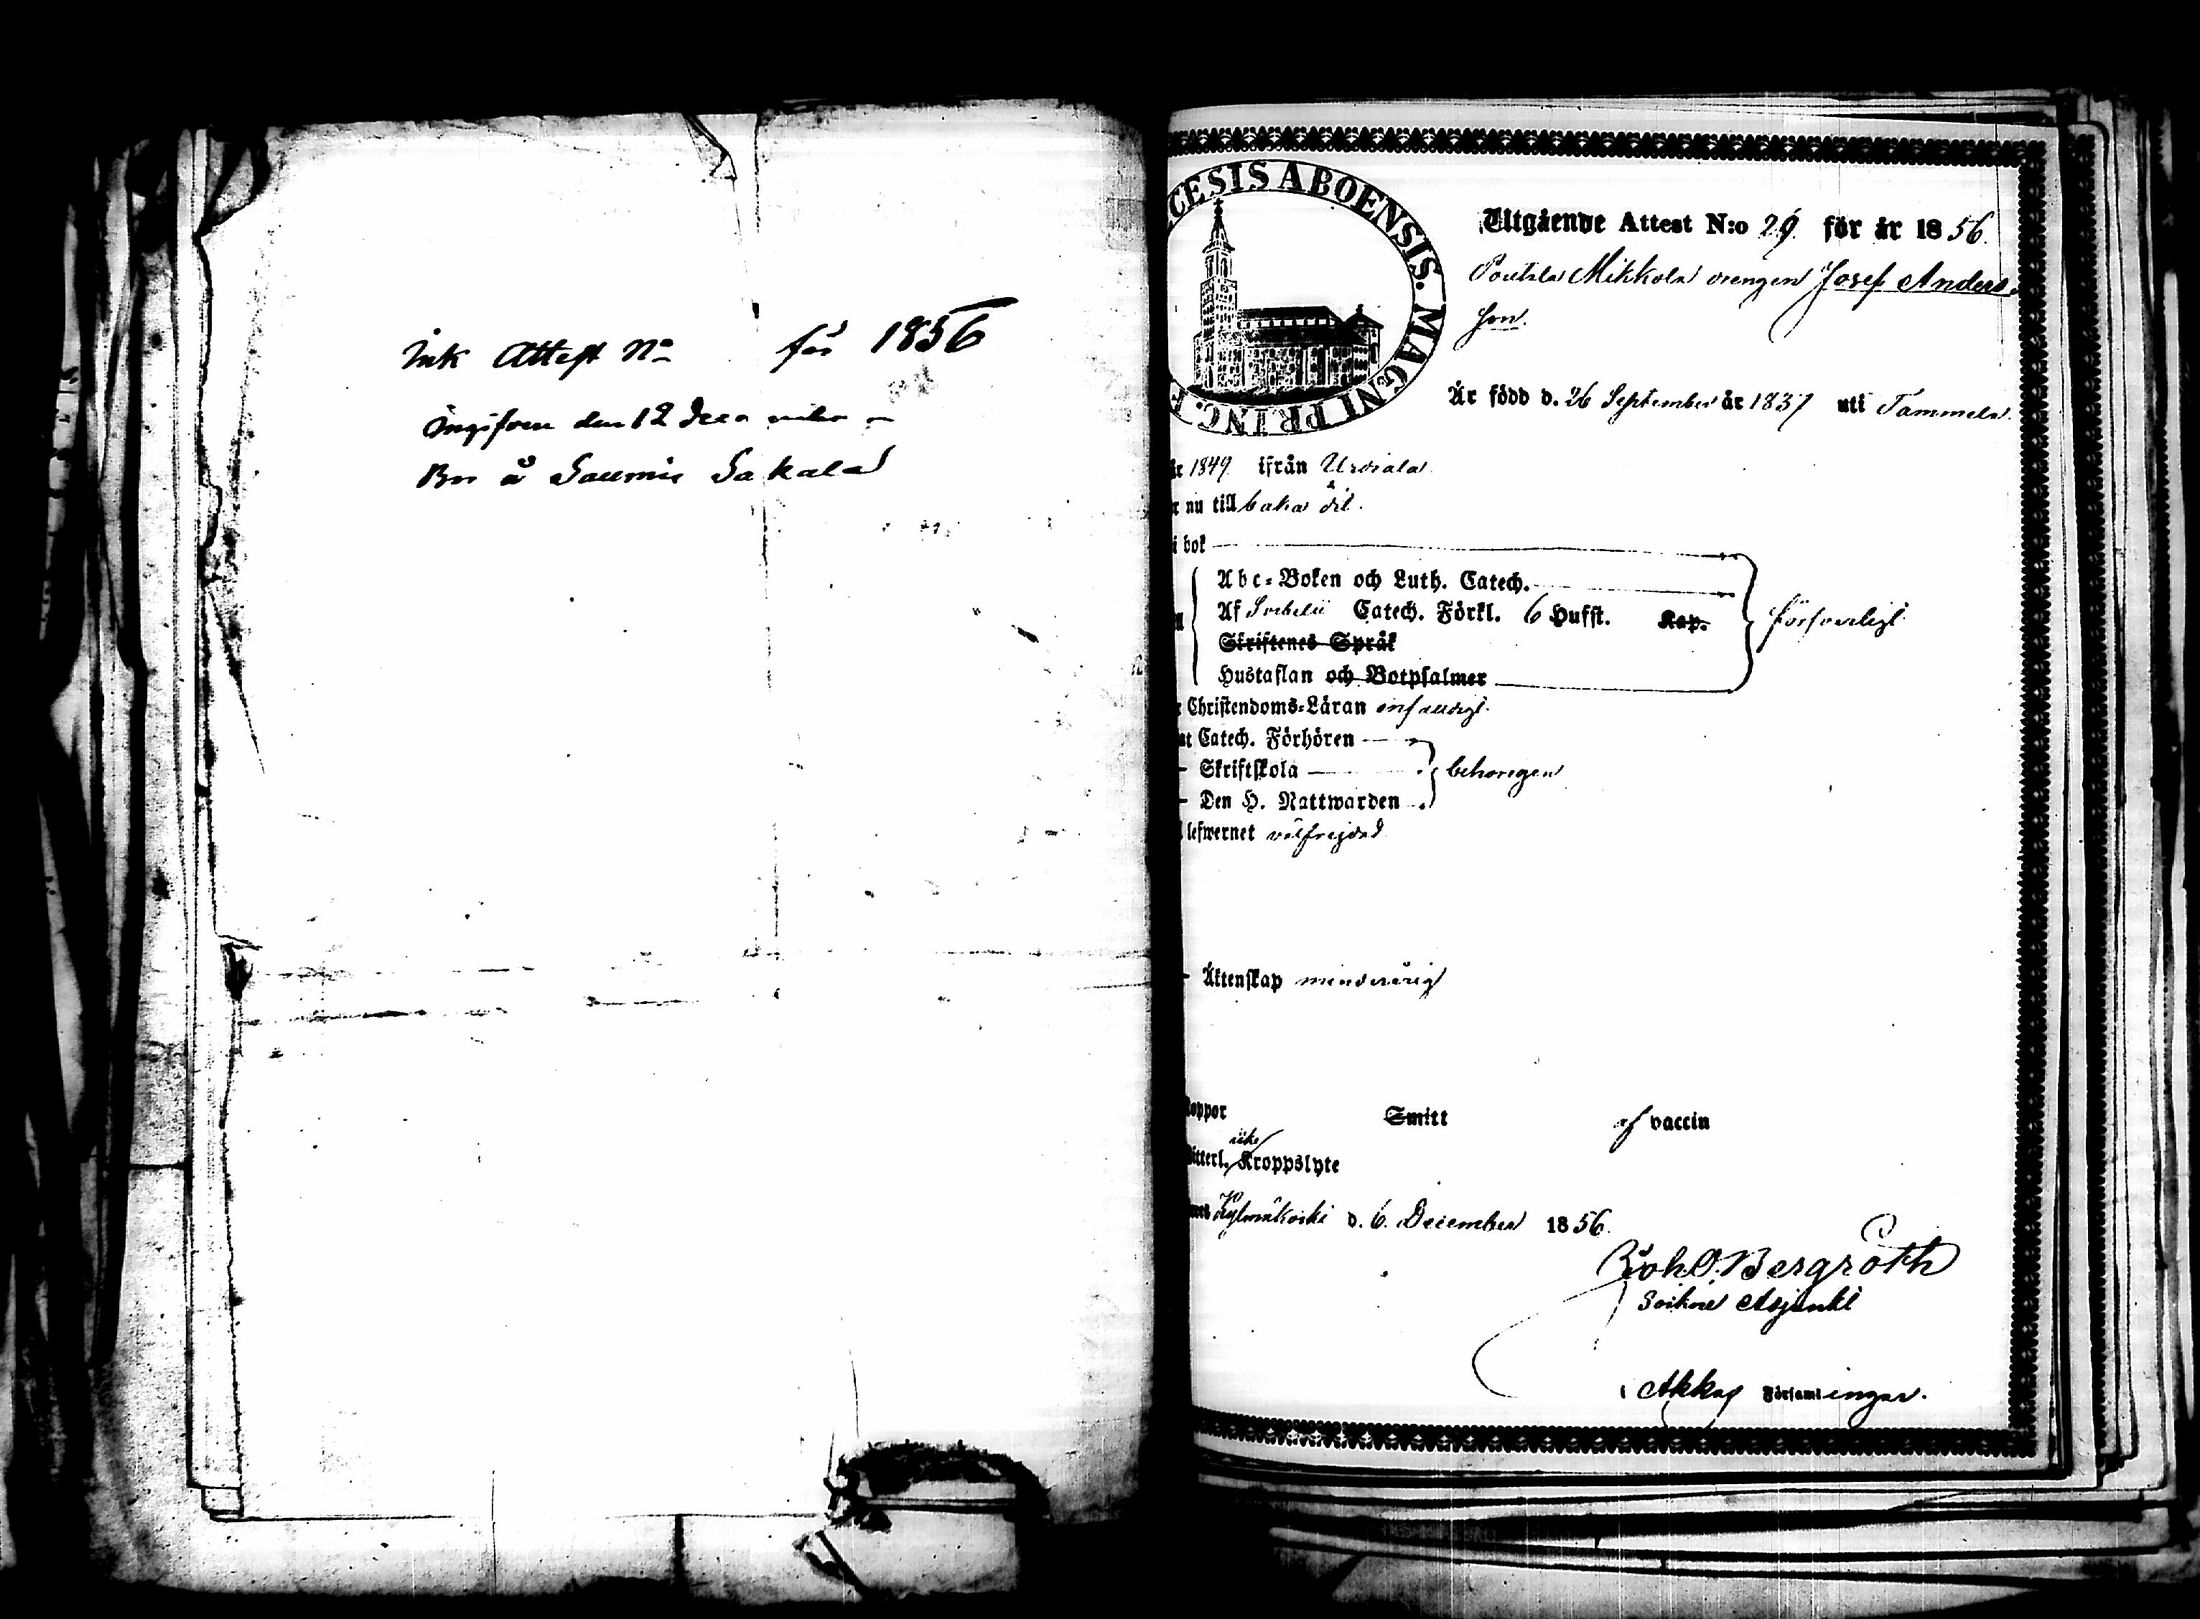 Ink Attest No för 1856
Ingifven den 12 December
Bor å Saumis Sakala
CESIS ABOENSIS. MAGNI PRINC. F
Utgående Attest N:o 29. för år 1856.
Poutala Mikkola drengen Josef Anders-
son.
Är född d. 26 September år 1837 uti Tammela.
år 1849 ifrån Urdiala
r nu till baka dit.
i bok
Abc-Boken och Luth. Catech.
Af Svebelii Catech. Förkl. 6 Hufst. Kap. försvarligt
Skriftenes Språk
Hustaflan och Botpsalmer
r Christendoms-Läran enfaldigt
at Catech. Förhören
- Skriftskola behörigen
- Den H. Nattwarden
lefwernet välfrejdad
- Äktenskap minderårig
koppor Smitt af vaccin
itterl. icke Kroppslyte
Kylmäkoski d. 6. December 1856.
Joh. O. Bergroth
Sockne Adjunkt
i Akkas Församlingar.